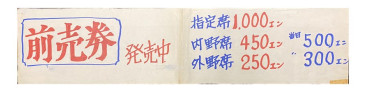 前売券 発売中
指定席 1,000エン
内野席 450エン 500エン
外野席 250エン 〃 300エン